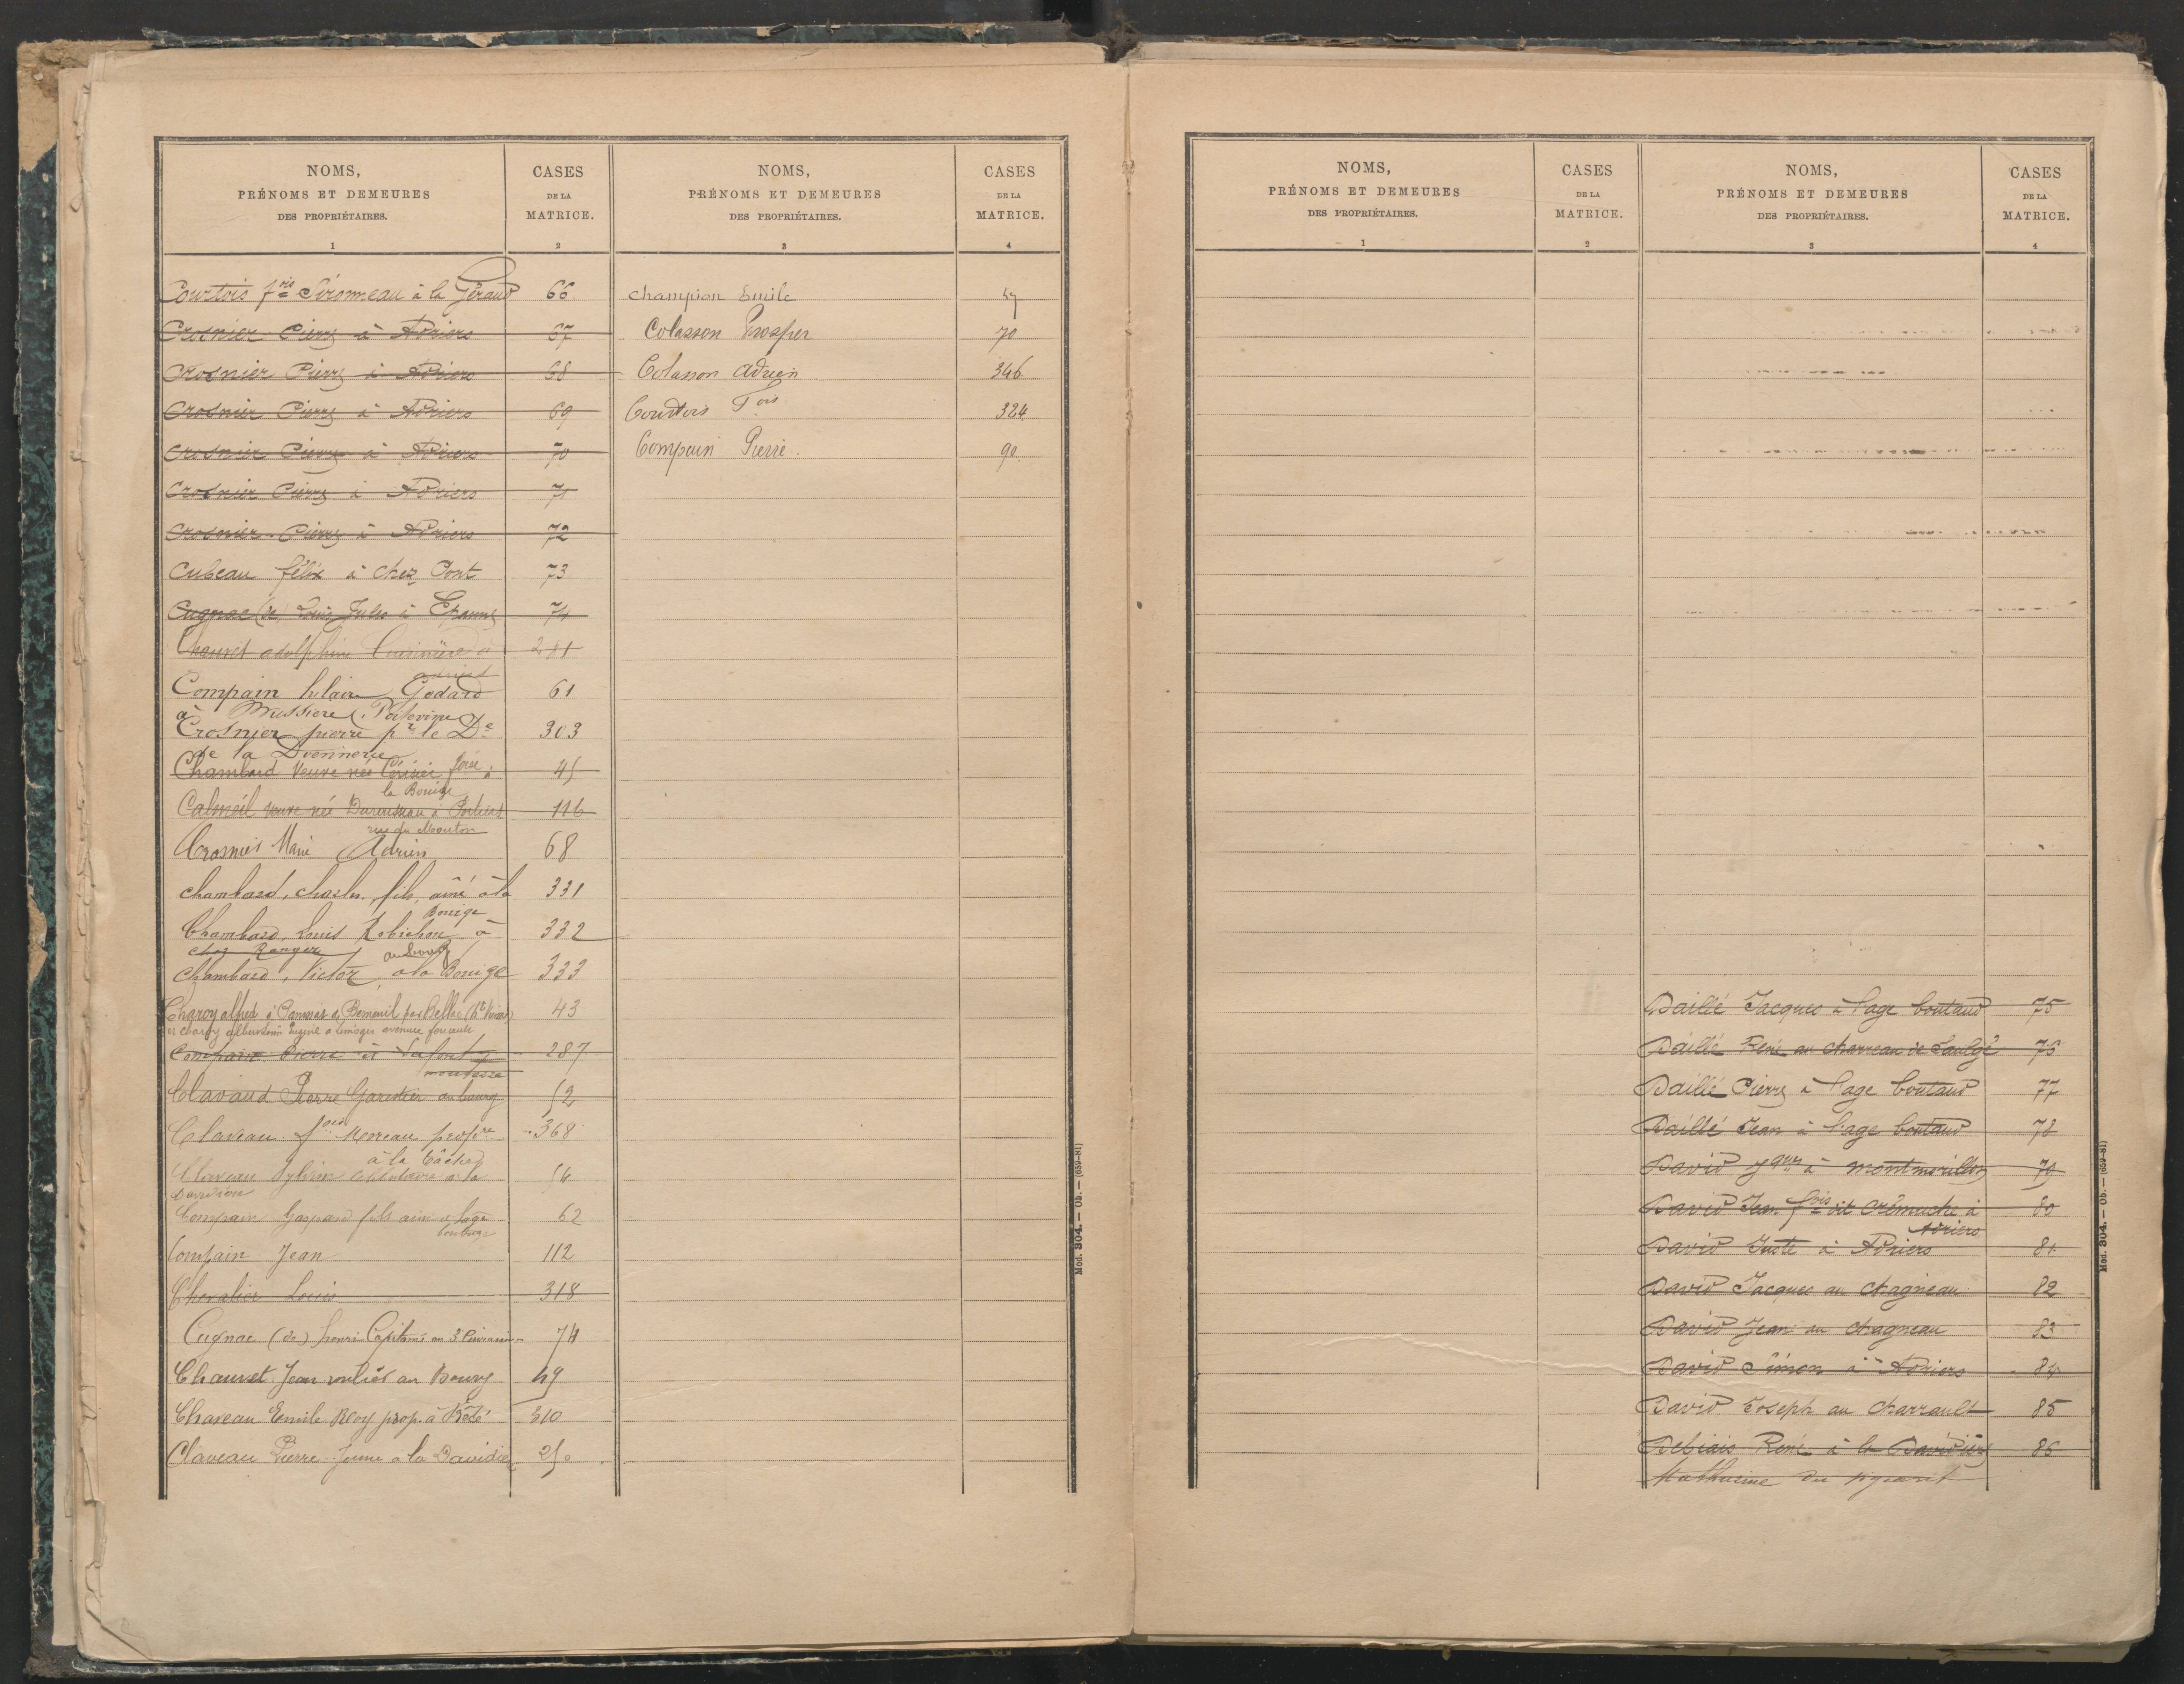 NOMS,
PRÉNOMS ET DEMEURES
DES PROPRIÉTAIRES.
1
CASES
DE LA
MATRICE.
2
Courtois fois Sironneau à la Géraud 66
Crosnier Pierre à Adriers 67
Crosnier Pierre à Adriers 68
Crosnier Pierre à Adriers 69
Crosnier Pierre à Adriers 70
Crosnier Pierre à Adriers 71
Crosnier Pierre à Adriers 72
Cubeau félix à chez Pont 73
Cugnac (de) Louis Jules à 74
Chauvet adolphine Cuisinière à 281
Compain hlaire Godard 61
à Bussière Poitevine
Crosnier pierre pr le De 303
de la
Chambard Veuve née à 45
la Bouige
Calmeil veuve née à Poitiers 116
rue du Mouton
Crosnier Marie Adrien 68
Chambard, charles, fils, ainé à la 331
Bouige
Chambard, Louis Robichon à 332
chez Ranger au bourg
Chambard, Victor, à la Bouige 333
Charoy alfred à par Bellac (Hte Vienne) 43
et Charoy Eugène à Limoges avenue
Compain Pierre à 287
Clavaud Pierre au bourg 52
Claveau fois Moreau propre 368
à la Vâcher
Claveau Sylvain à la 54
Compain Gaspard fils ainé 62
Compain Jean 112
Chevalier Louis 318
Cugnac (de) henri Capitaine au 3e 74
Chauvet Jean au Bourg 49
Claveau Emile Roy prop. à 310
Claveau Pierre Jeune à la Davidière 250
NOMS,
PRÉNOMS ET DEMEURES
DES PROPRIÉTAIRES.
3
CASES
DE LA
MATRICE.
4
Champion Emile
Colasson Prosper 70
Colasson Adrien 346
Courtois Fois 324
Compain Pierre. 90
Mod. 304. — Ob. — (659-81)
NOMS,
PRÉNOMS ET DEMEURES
DES PROPRIÉTAIRES.
1
CASES
DE LA
MATRICE.
2
NOMS,
PRÉNOMS ET DEMEURES
DES PROPRIÉTAIRES.
3
CASES
DE LA
MATRICE.
4
Daillé Jacques à l'age boutaud 75
Daillé René au charreau de Saulgé 76
Daillé Pierre à l'age boutaud 77
Daillé Jean à l'age boutaud 78
David à montmorillon 79
David Jean fois dit Crêmuche à 80
Adriers
David Juste à Adriers 81
David Jacques au chagneau 82
David Jean au chagneau 83
David Simon à Adriers 84
David Joseph au charrault 85
Debiais René à la Davidière 86
Mathurine du
Mod. 304. — Ob. — (659-81)